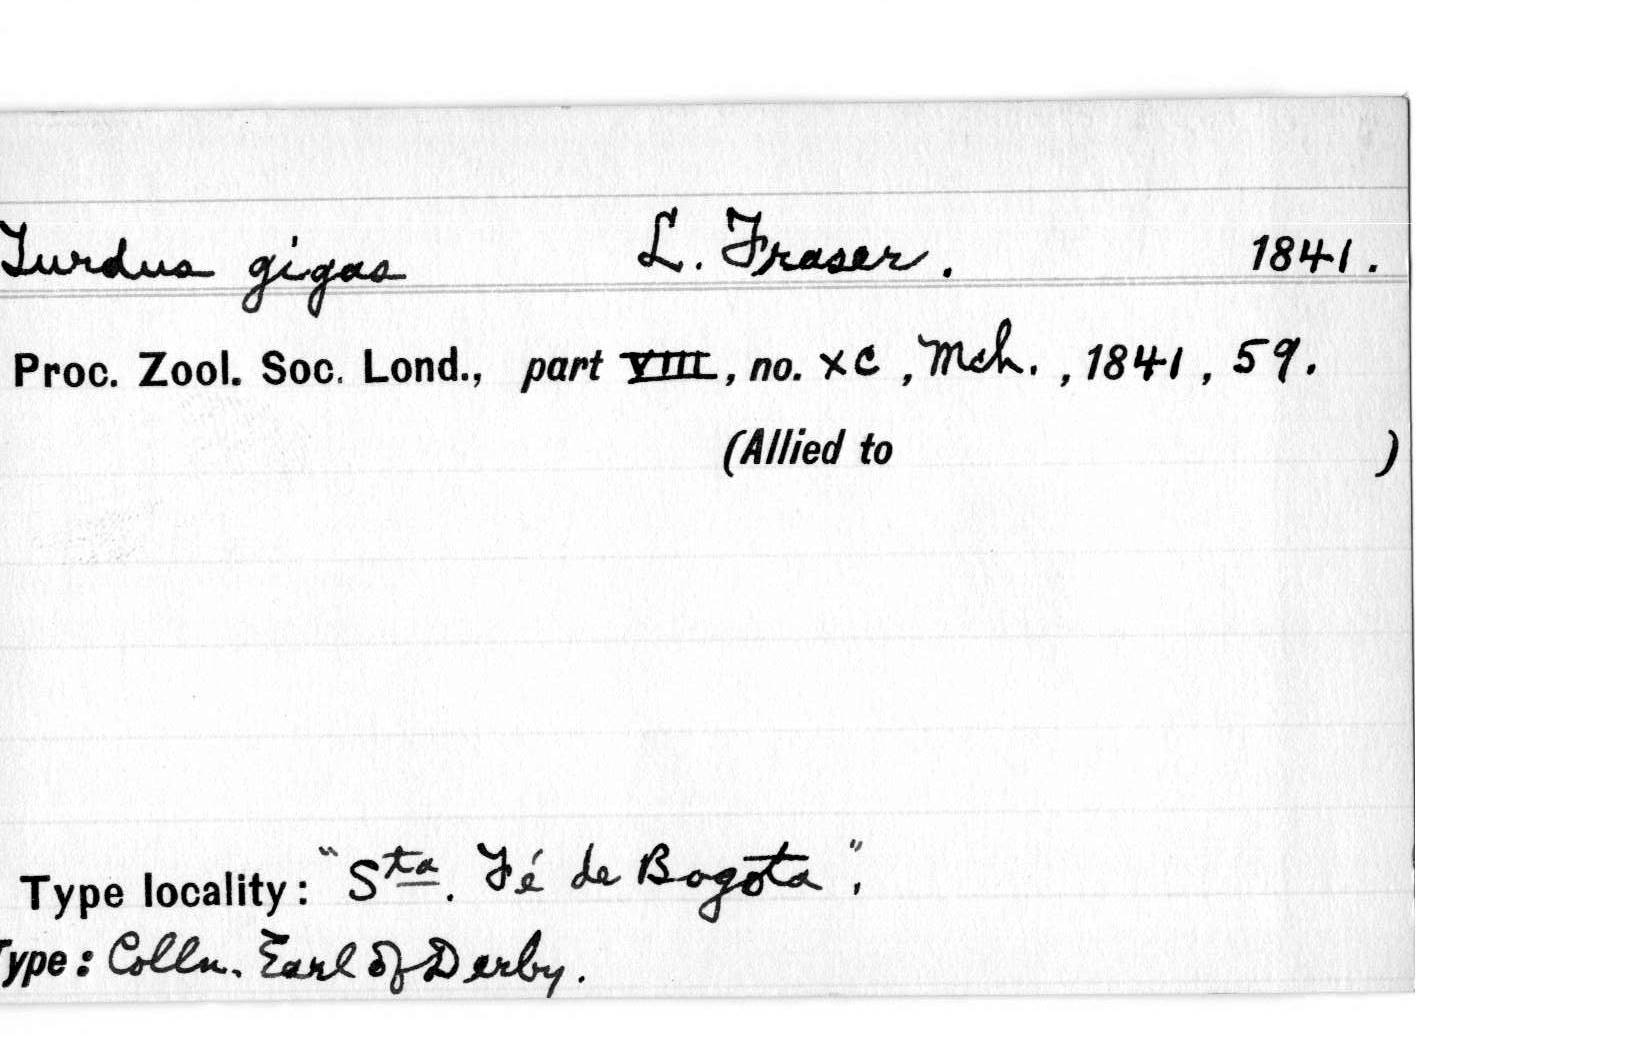 Turdus gigas L. Fraser. 1841.
Proc. Zool. Soc. Lond., part VIII, no. XC, Mch., 1841, 59.
(Allied to )
Type locality: "Sta. Fé de Bogota".
Type: Colln. Earl of Derby.